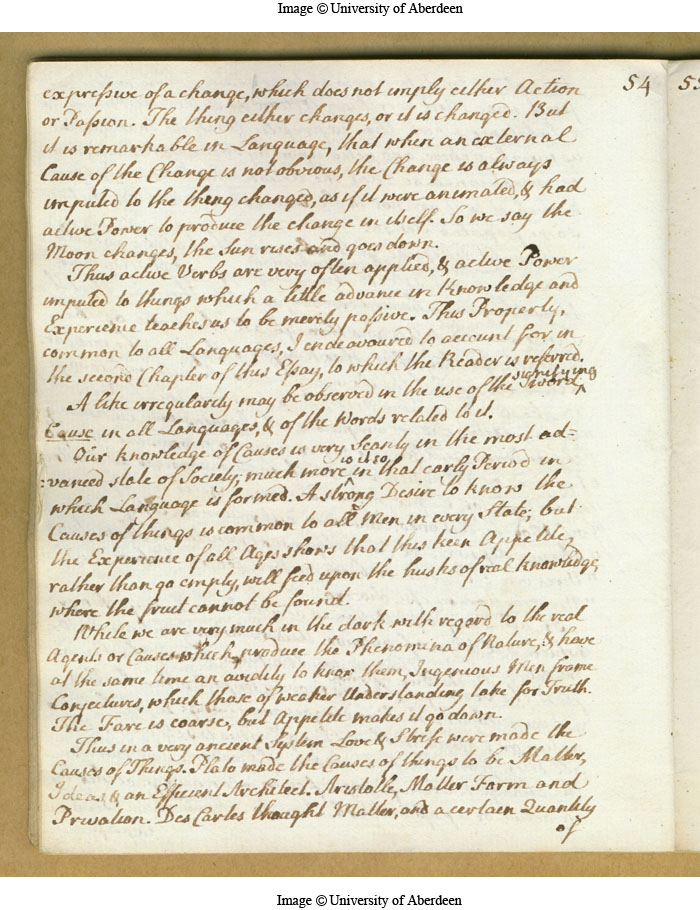 Image © University of Aberdeen
54
55
expressive of a change, which does not imply either Action
or Passion. The thing either changes, or it is changed. But
it is remarkable in Language, that when an external
Cause of the Change is not obvious, the Change is always
imputed to the thing changed, as if it were animated, & had
active Power to produce the change in itself. So we say the
Moon changes, the Sun rises and goes down.
Thus active Verbs are very often applied, & active Power
imputed to things which a little advance in Knowledge and
Experience teaches us to be merely passive. This Property,
common to all Languages, I endeavoured to account for in
the second Chapter of this Essay, to which the Reader is referred.
A like irregularity may be observed in the use of the word ^ signifying
Cause in all Languages, & of the Words related to it.
Our knowledge of Causes is very scanty in the most ad=
:vanced state of Society; much more ^ is it so in that early Period in
which Language is formed. A strong Desire to know the
Causes of things is common to all Men in every State; but
the Experience of all Ages shows that this keen Appetite,
rather than go empty, will feed upon the husks of real knowledge,
where the fruit cannot be found.
While we are very much in the dark with regard to the real
Agents or Causes which produce the Phenomina of Nature, & have
at the same time an avidity to know them, Ingenious Men frame
Conjectures, which those of weaker Understanding take for Truth.
The Fare is coarse, but Appetite makes it go down.
Thus in a very ancient System Love & Strife were made the
Causes of Things. Plato made the Causes of things to be Matter,
Ideas & an Efficient Architect. Aristotle, Matter Form and
Privation. Des Cartes thought Matter, and a certain Quantity
of
Image © University of Aberdeen